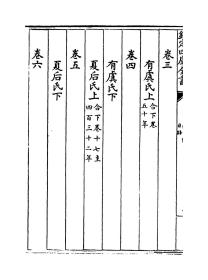 欽定四庫全書
卷三
有虞氏上合下卷五十年
卷四
有虞氏下
夏后氏上合下卷十七主四百三十二年
卷五
夏后氏下
卷六